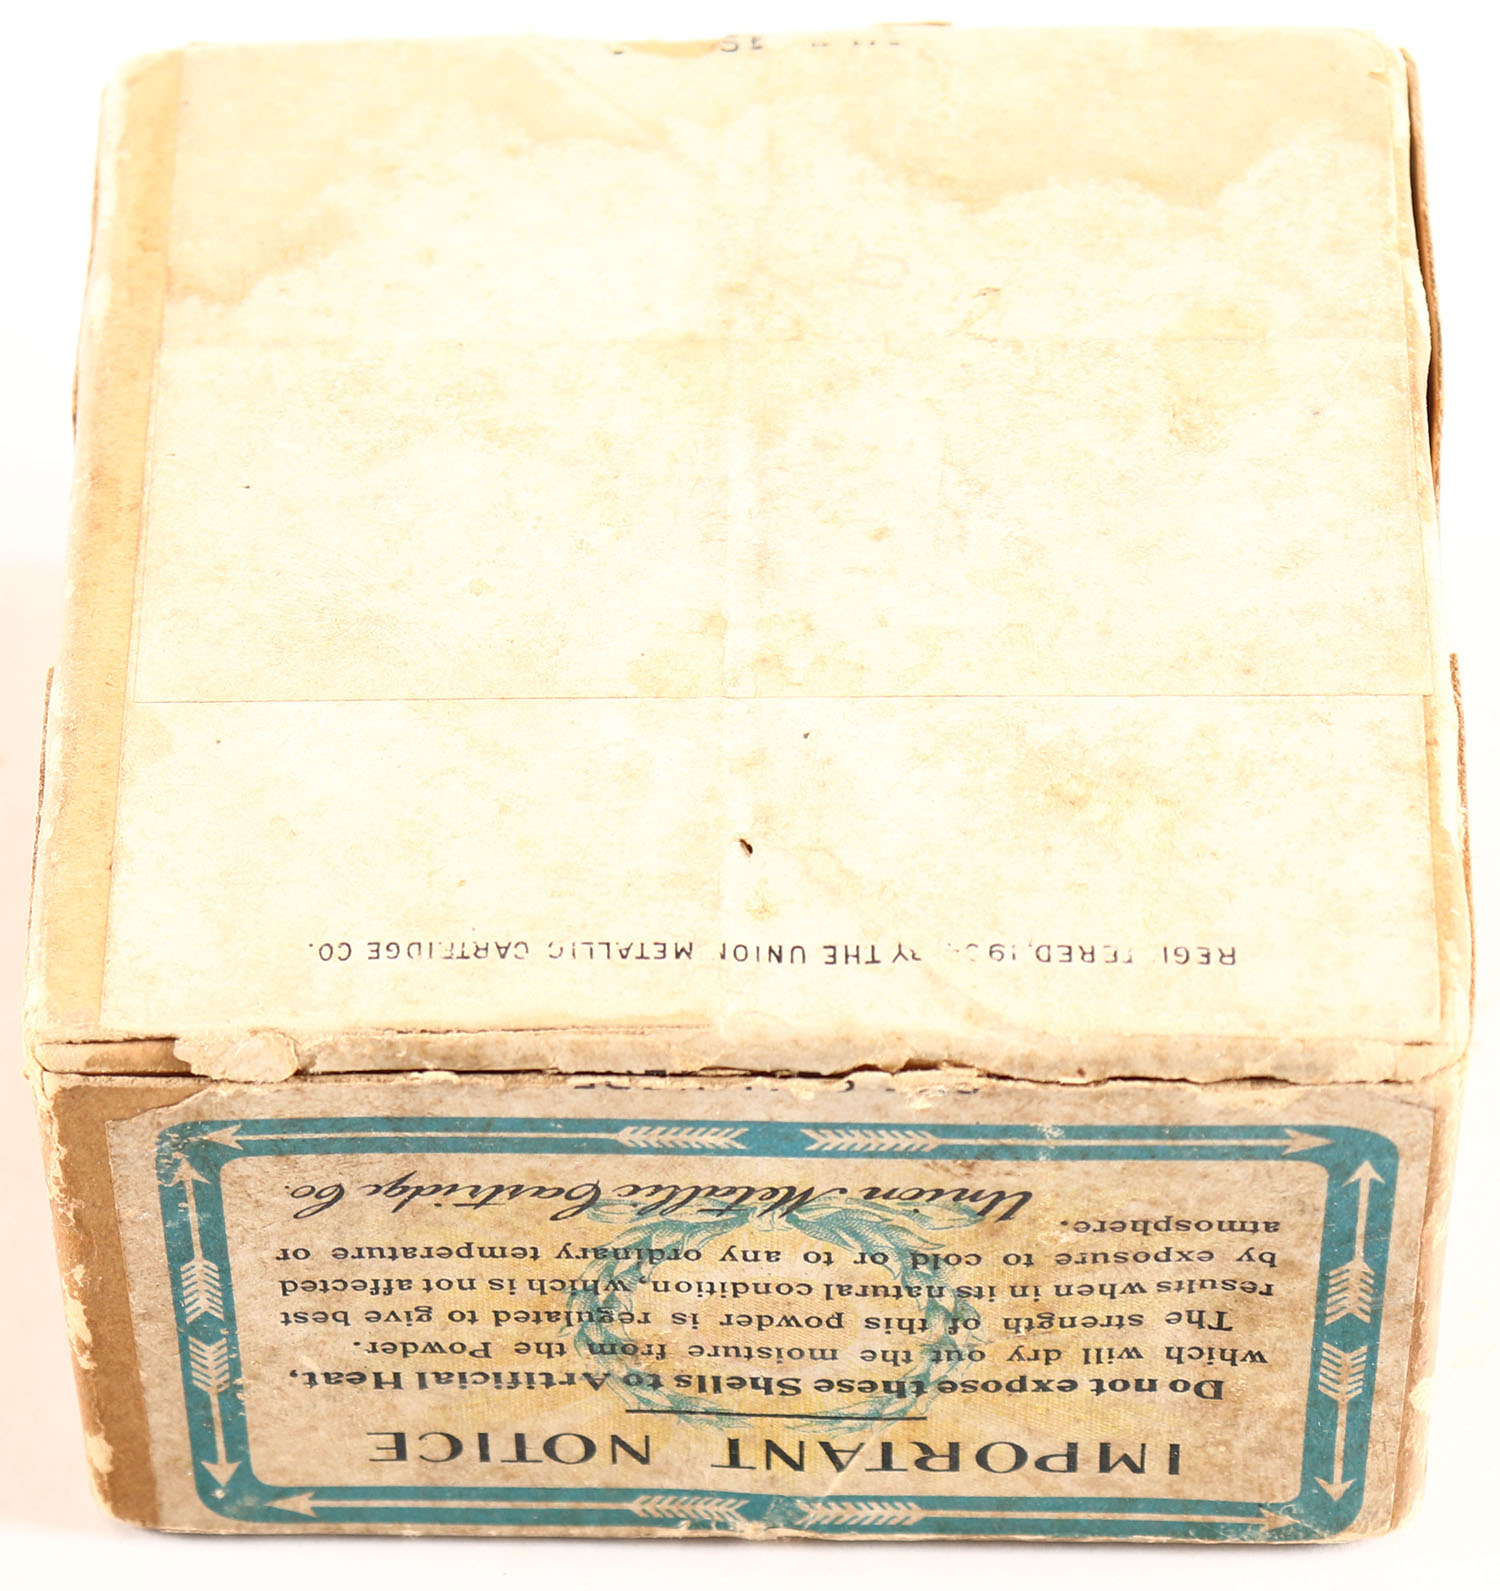 IMPORTANT NOTICE
Do not expose these Shells to Artificial Heat,
which will dry out the moisture from the Powder.
The strength of this powder is regulated to give best
results when in its natural condition, which is not affected
by exposure to cold or to any ordinary temperature or
atmosphere.
Union Metallic Cartridge Co.
THE UNION METALLIC CARTRIDGE CO.